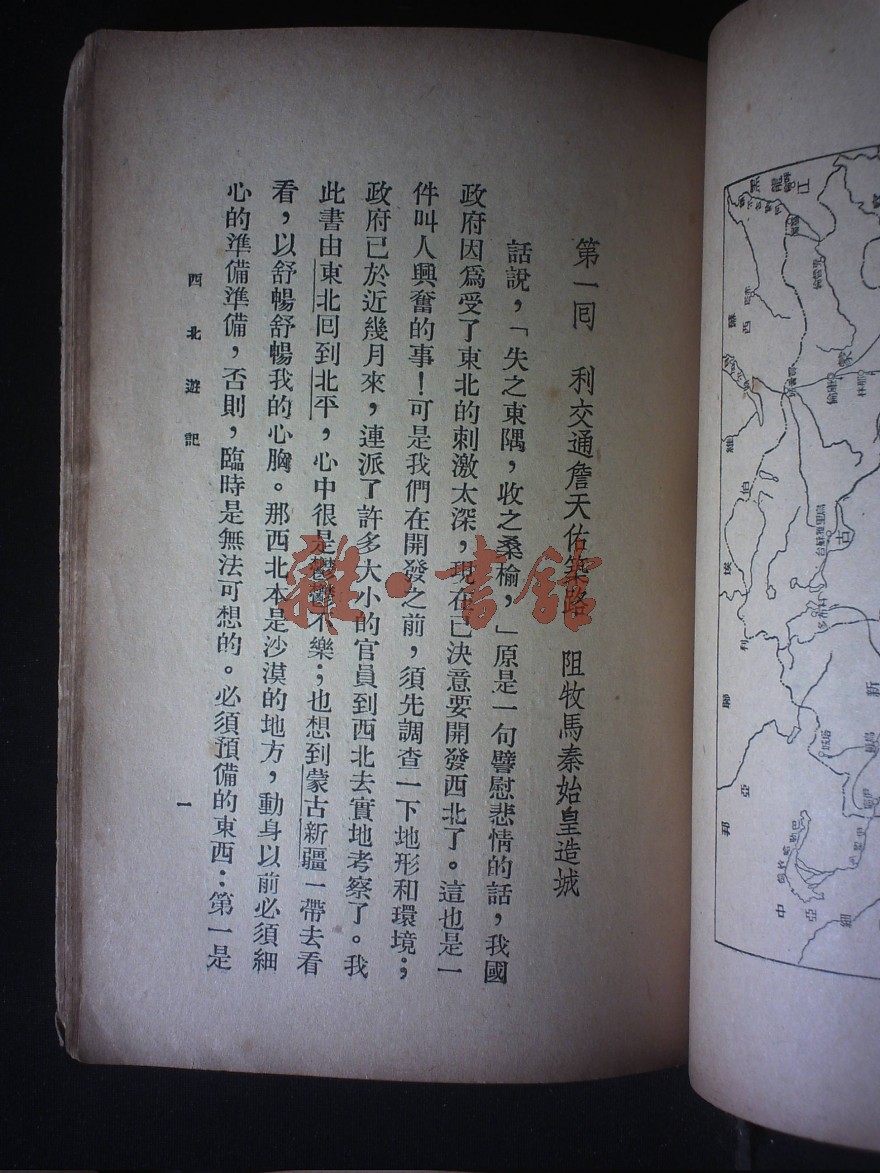 第一囘　利交通詹天佑築路　阻牧馬秦始皇造城
話說，「失之東隅，收之桑榆，」原是一句譬慰悲情的話，我國
政府因爲受了東北的刺激太深，現在已決意要開發西北了。這也是一
件叫人興奮的事！可是我們在開發之前，須先調查一下地形和環境；
政府已於近幾月來，連派了許多大小的官員到西北去實地考察了。我
此書由東北囘到北平，心中很是鬱鬱不樂；也想到蒙古新疆一帶去看
看，以舒暢舒暢我的心胸。那西北本是沙漠的地方，動身以前必須細
心的準備準備，否則，臨時是無法可想的。必須預備的東西：第一是
西北遊記
一
雜·書館
新
古
蒙